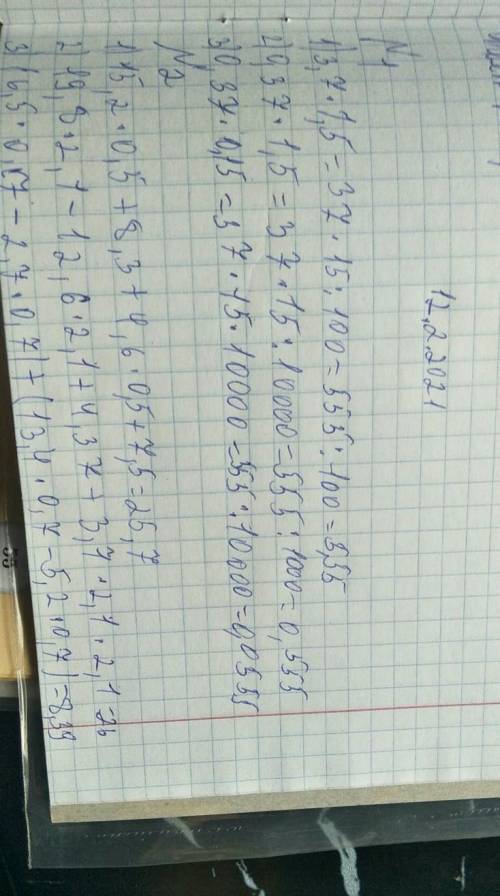 12.2.2021
N1
1) 3,7·1,5=37·15:100=555:100=5,55
2) 0,37·1,5=37·15:10000=555:1000=0,555
3) 0,37·0,15=37·15:10000=555:10000=0,0555
N2
1) 15,2·0,5+8,3+4,6·0,5+7,5=25,7
2) 19,8·2,1-12,6·2,1+4,37+3,7·2,1·2,1=26
3) (6,5·0,7-2,7·0,7)+(13,4·0,7-5,2·0,7)=8,39